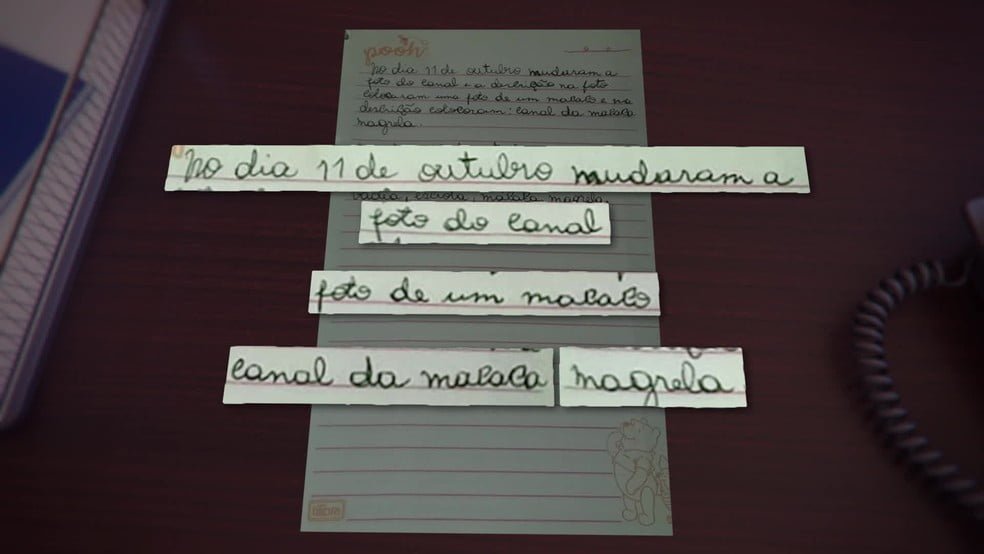 pooh
No dia 11 de outubro mudaram a
foto do canal e a descrição na foto
colocaram uma foto de um macaco e na
descrição colocaram: canal da macaca
magrela.
No dia 11 de outubro mudaram a
macaca magrela
foto do canal
foto de um macaco
canal da macaca magrela.
tilibra